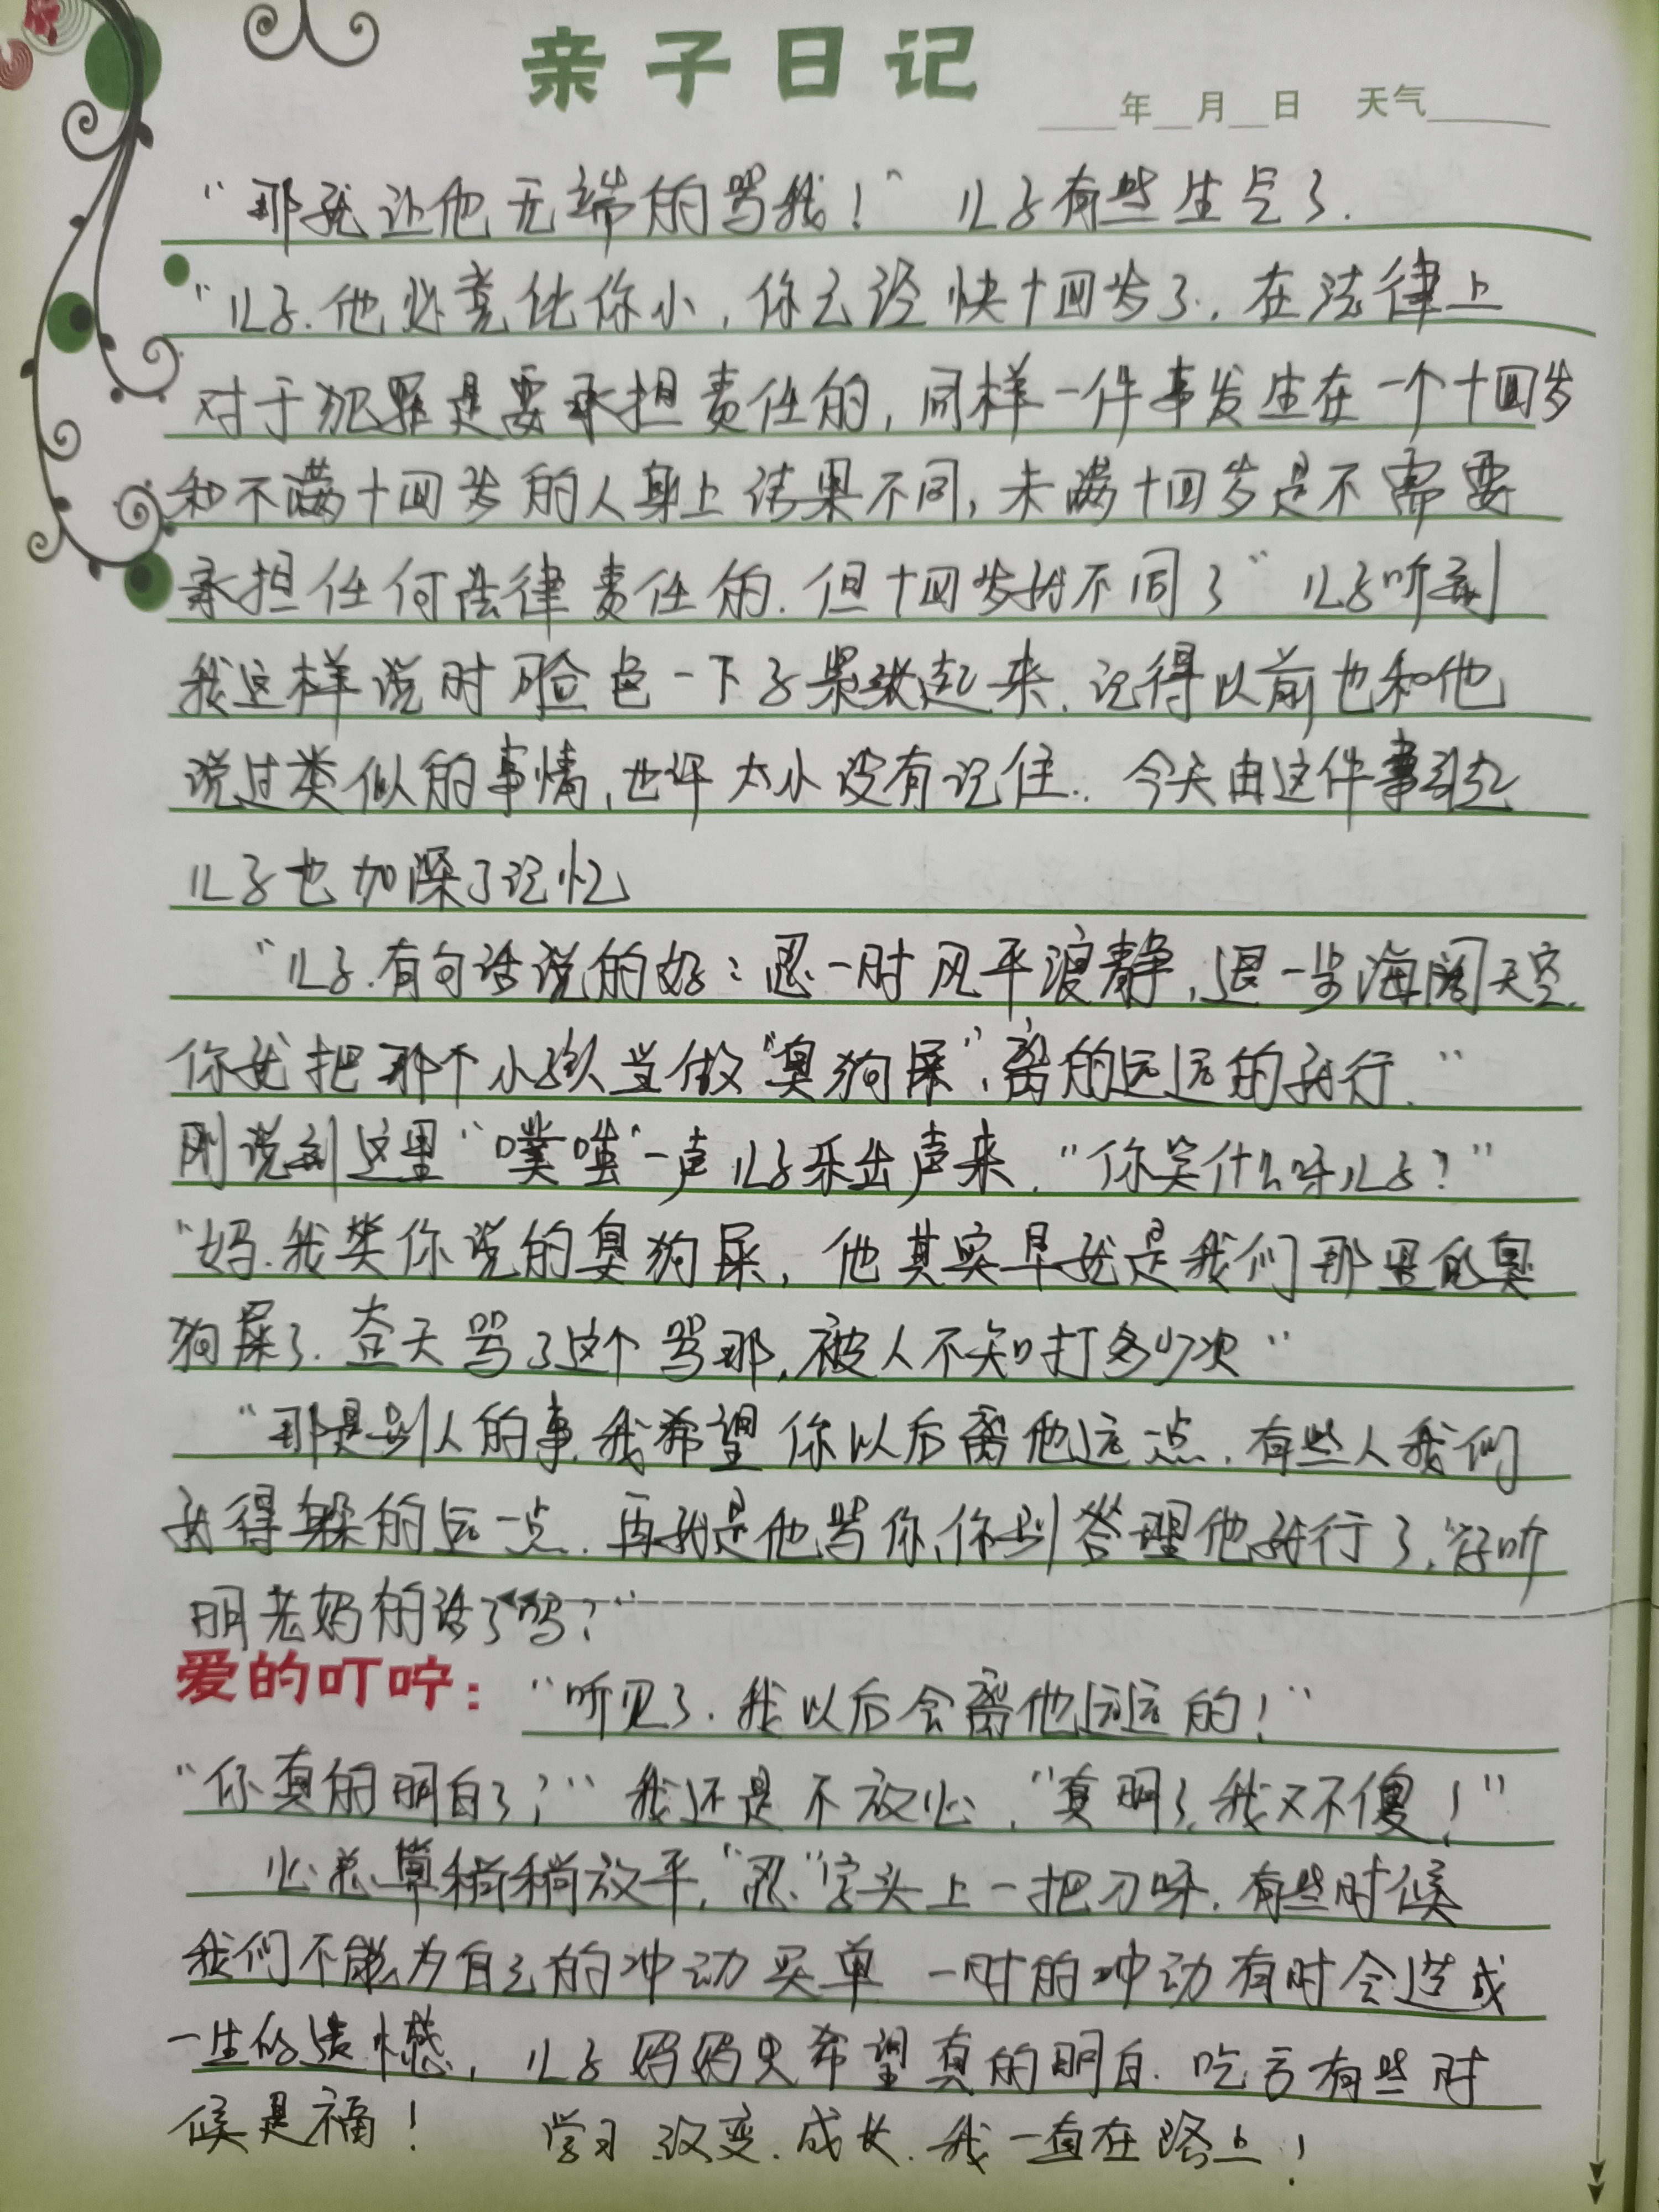 亲子日记
年 月 日 天气
“那就让他无端的骂我！” 儿子有些生气了.
“儿子.他必竟比你小，你已经快十四岁了，在法律上
对于犯罪是要承担责任的，同样一件事发生在一个十四岁
和不满十四岁的人身上结果不同，未满十四岁是不需要
承担任何法律责任的.但十四岁就不同了” 儿子听到
我这样说时脸色一下子紧张起来.记得以前也和他
说过类似的事情，也许太小没有记住.. 今天由这件事引起
儿子也加深了记忆
“儿子.有句话说的好：忍一时风平浪静，退一步海阔天空.
你就把那个小孩当做“臭狗屎”，离的远远的就行.”
刚说到这里“噗嗤”一声儿子乐出声来.“你笑什么呀儿子？”
“妈.我笑你说的臭狗屎，他其实早就是我们那里的臭
狗屎了.查天骂了这个骂那，被人不知打多少次”
“那是别人的事.我希望你以后离他远一点.有些人我们
就得躲的远一点.再就是他骂你，你别答理他就行了，
明老妈的话了吗？”
爱的叮咛：“听见了.我以后会离他远远的！”
“你真的明白了？” 我还是不放心.“真明了，我又不傻！”
心总算稍稍放平，“忍”字头上一把刀呀.有些时候
我们不能为自己的冲动买单 一时的冲动有时会造成
一生的遗憾，儿子妈妈更希望真的明白.吃亏有些时
候是福！ 学习.改变.成长.我一直在路上！